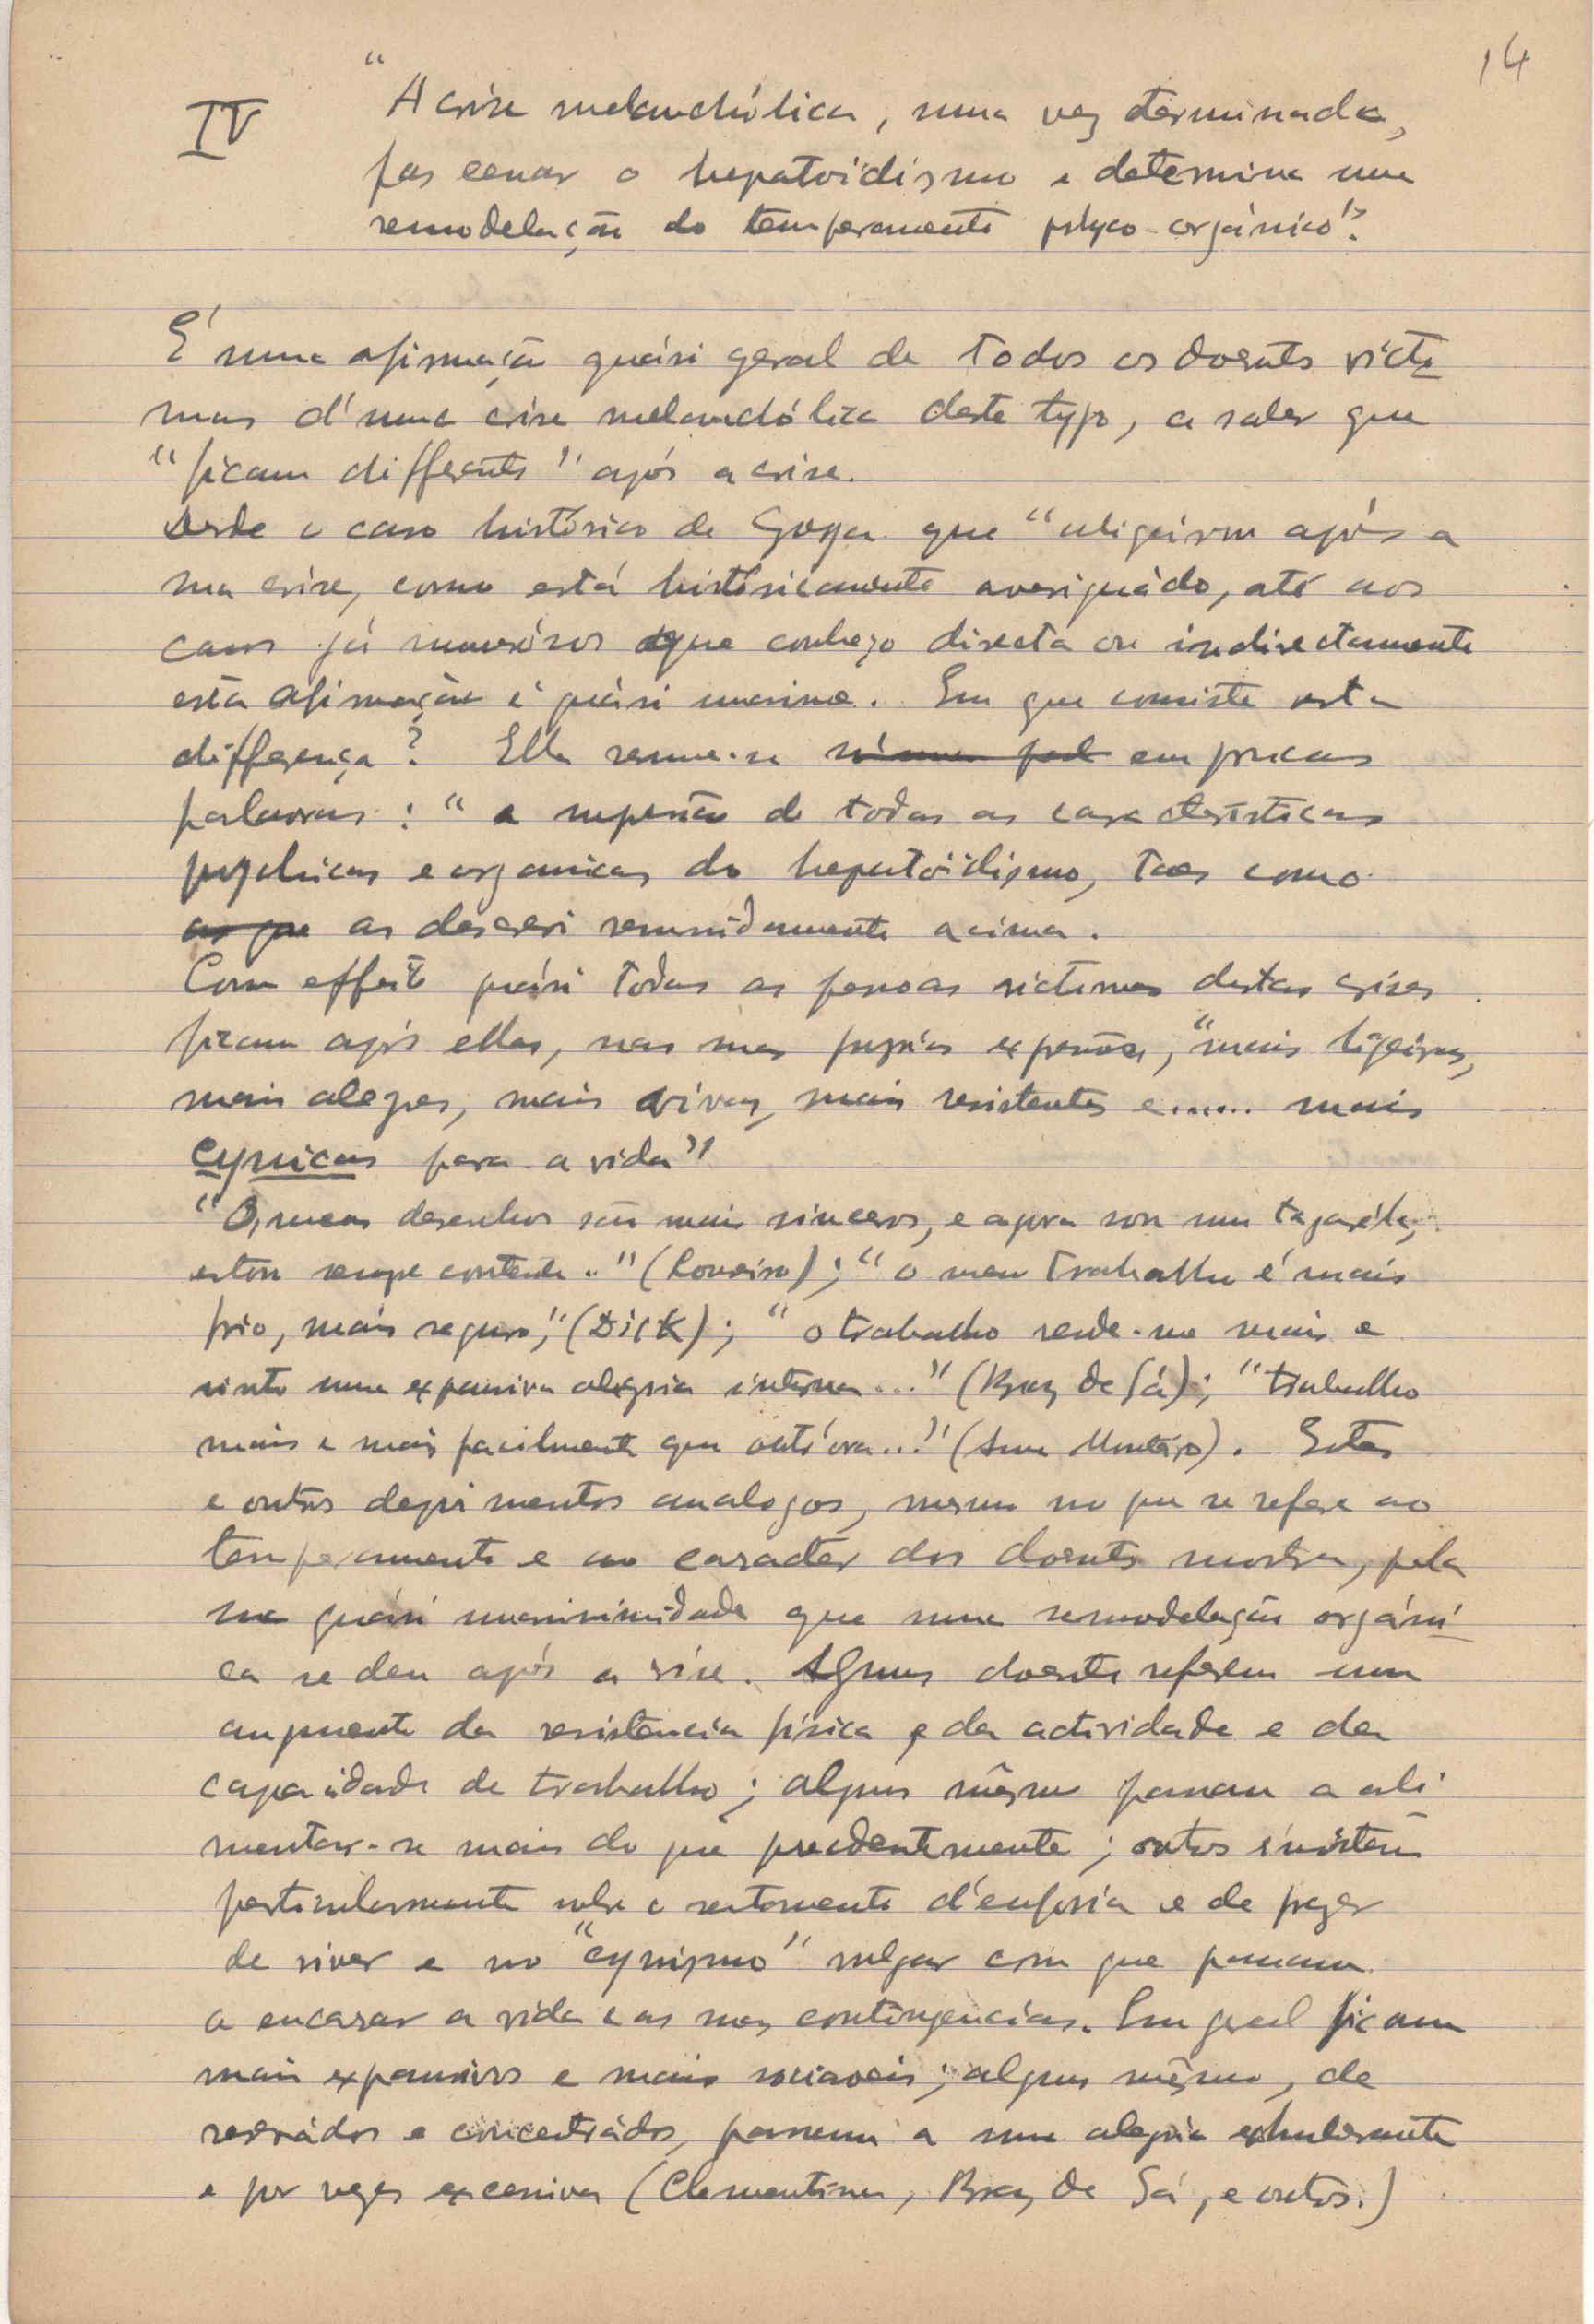 14
IV
"A crise melanchólica, uma vez terminada,
faz cessar o hepatoïdismo e determina uma
remodelação do temperamento psyco-orgánico".
É uma afirmação quási geral de todos os doentes vícti
mas d'uma crise melanchólica deste typo, a saber que
"ficam differentes" após a crise.
Desde o caso histórico de Goya que "aligeirou após a
sua crise, como está históricamente averiguádo, até aos
casos já numerósos que conheço directa ou indirectamente
esta afirmação é quási unanime. Em que consiste esta
differença? Ella resume-se em poucas
palavras: "a supressão de todas as características
psychicas e organicas do hepatoïdismo, taes como
as descrevi resumidamente acima.
Com effeito quási todas as pessoas victimas destas crises
ficam após ellas, nas suas proprias expressões, "mais ligeiras,
mais alegres, mais vivas, mais resistentes e...... mais
cynicas para a vida"
"Os meus desenhos são mais sinceros, e agora sou um tagaréla,
estou sempre contente.." (Loureiro); "o meu trabalho é mais
frio, mais seguro," (Dick); "o trabalho rende-me mais e
sinto uma expansiva alegria interna..." (Braz de Sá); "trabalho
mais e mais facilmente que outr'ora..." (  Monteiro). Estes
e outros depoimentos analogos, mesmo no que se refere ao
temperamento e ao caracter dos doentes mostra, pela
sua quási unanimidade que uma remodelação orgáni
ca se deu após a crise. Alguns doentes referem um
augmento da resistencia física e da actividade e da
capacidade de trabalho; alguns mêsmo passam a ali
mentar-se mais do que precedentemente; outros insistem
particularmente sobre o sentimento d'euforia e de prazer
de viver e no "cynismo" vulgar com que passam
a encarar a vida e as suas contingencias. Em geral ficam
mais expansivos e mais sociaveis; alguns mêsmo, de
reservádos e concentrádos, passam a uma alegria exhuberante
e por vezes excessiva (Clementina, Braz de Sá, e outros.)